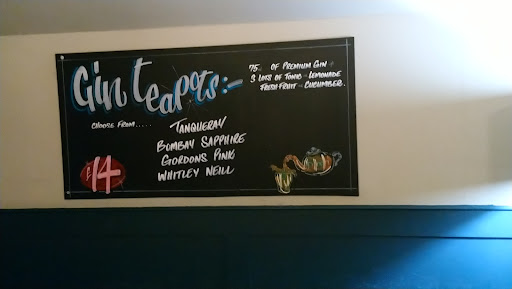 Gin teapots:-
75 OF PREMIUM GIN +
3 LOTS OF TONIC - LEMONADE
FRESH FRUIT - CUCUMBER.
CHOOSE FROM.....
TANQUERAY
BOMBAY SAPPHIRE
GORDONS PINK
WHITLEY NEILL
£14